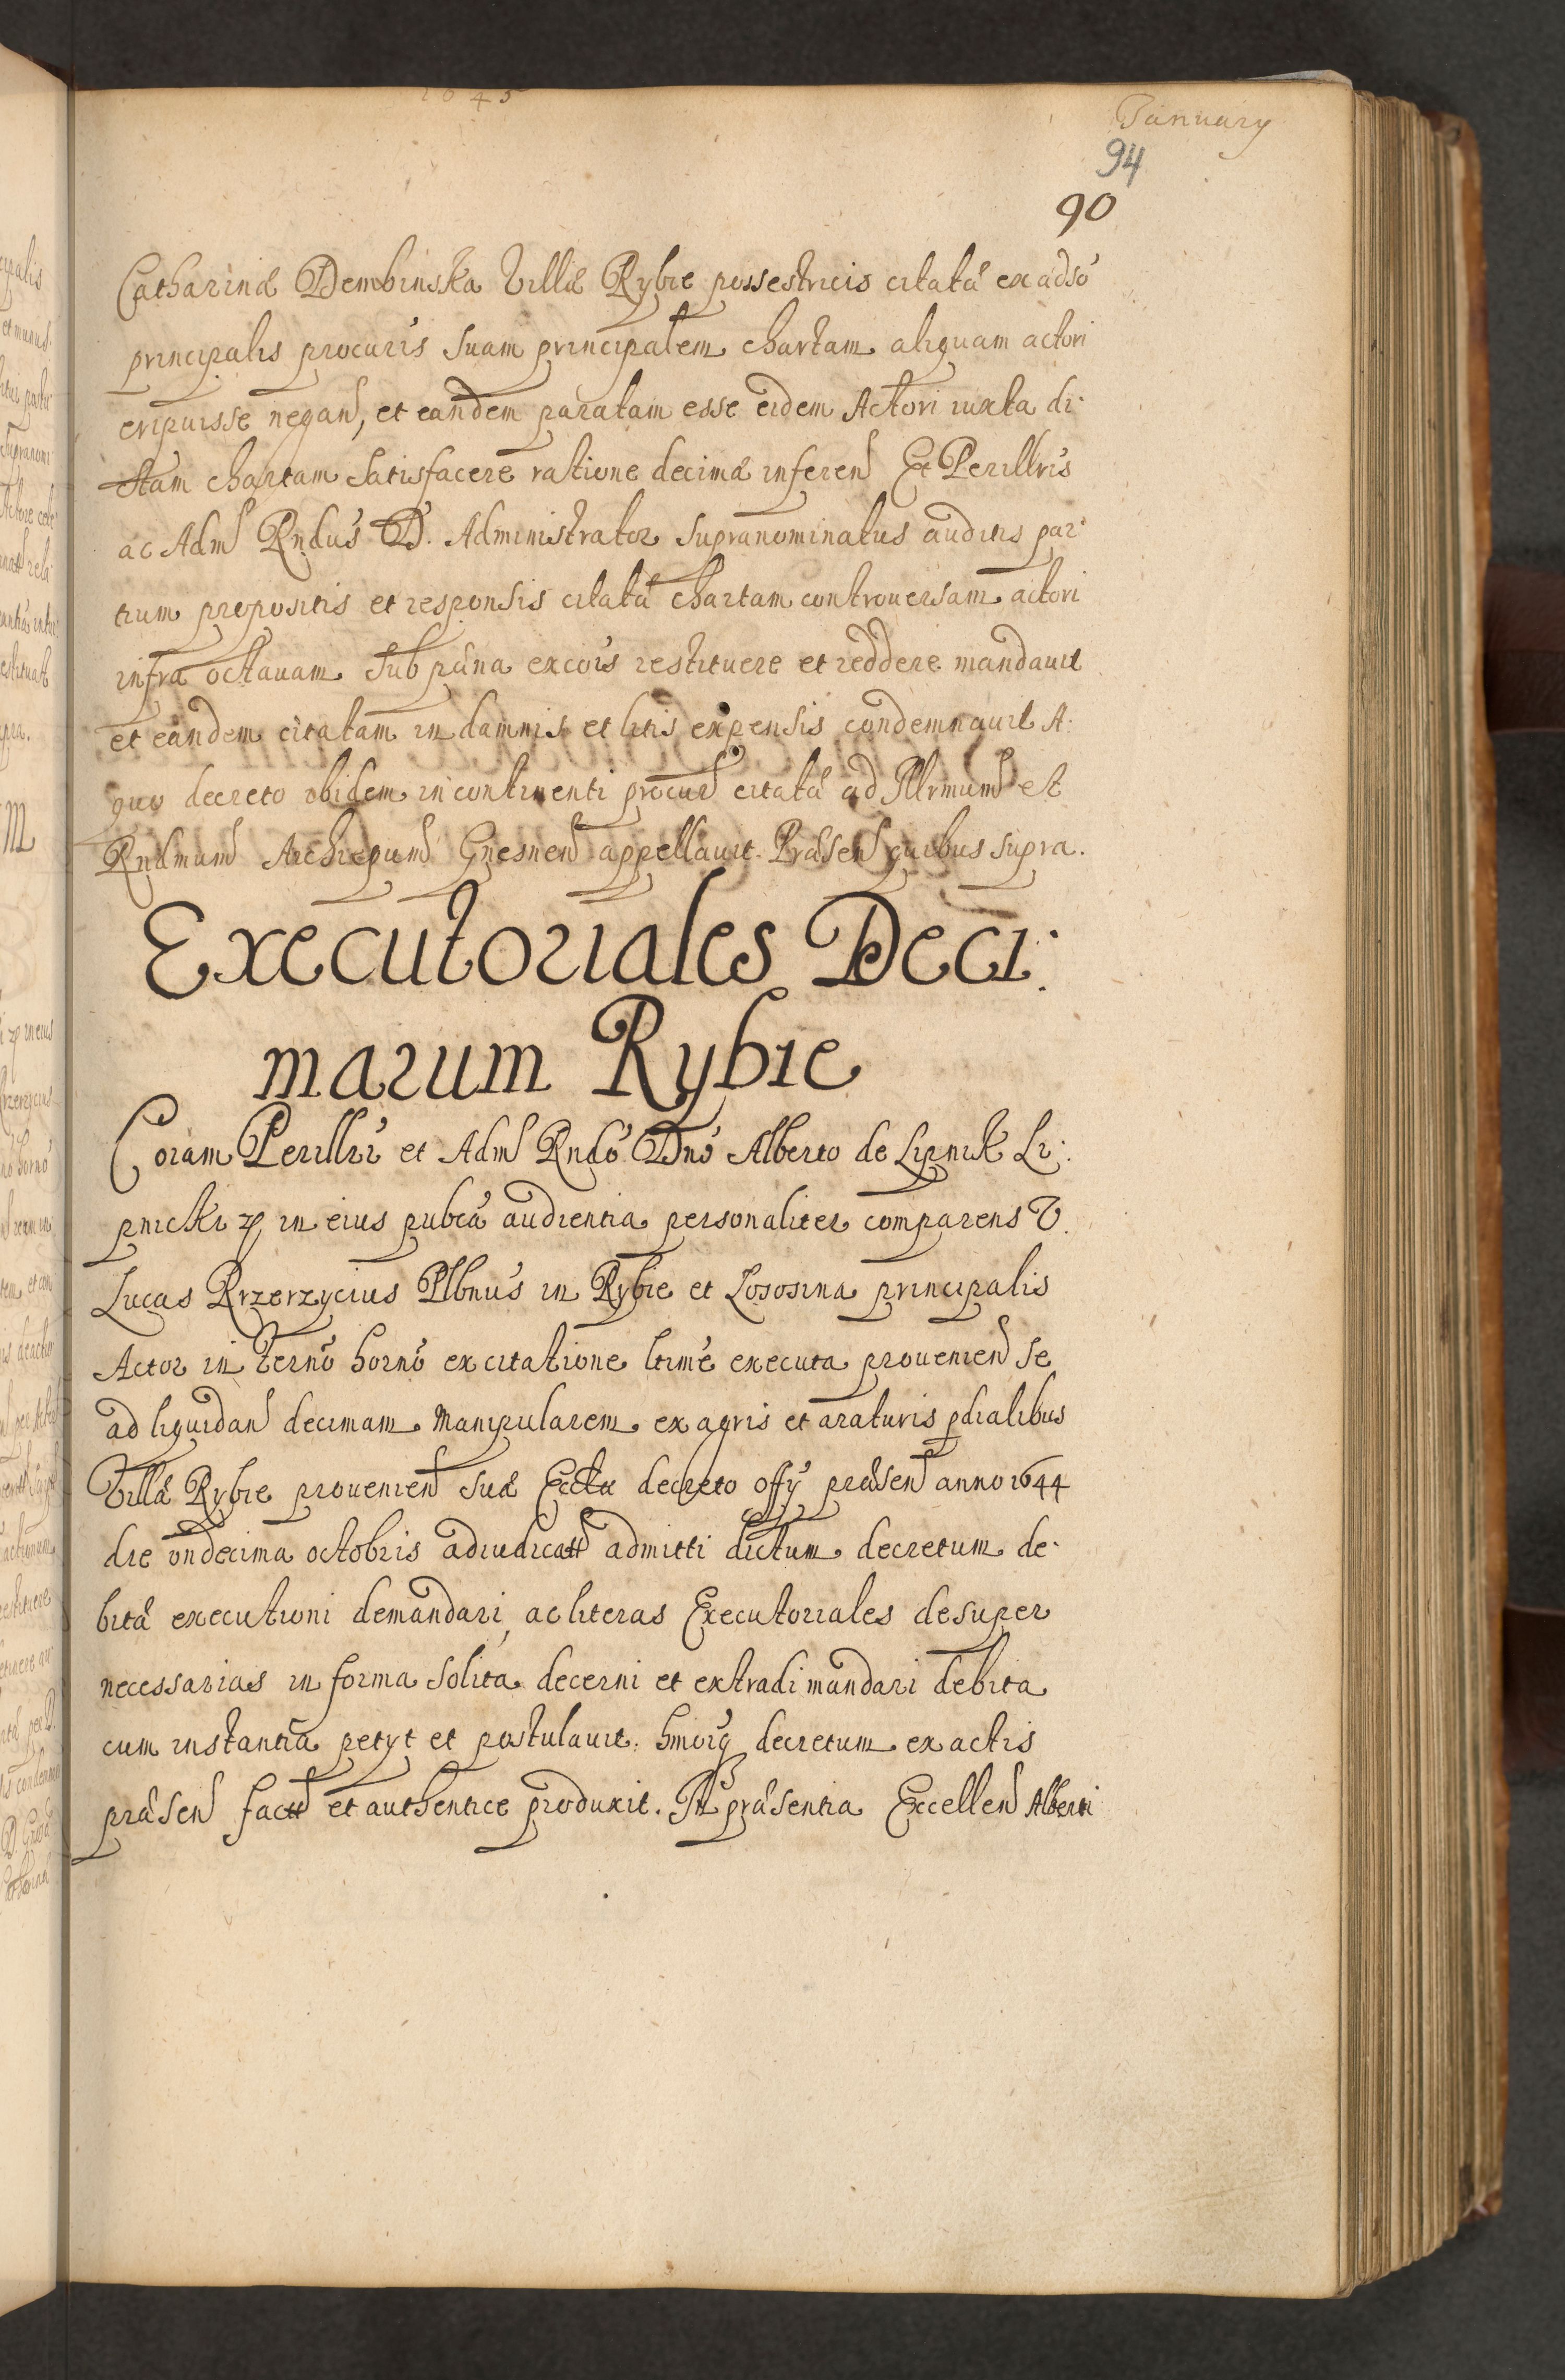 1645
January
94
90
Catharinæ Dembinska Villæ Rybie possestricis citatæ ex adso
principalis procuris suam principalem chartam aliquam actori
eripuisse negan, et eandem paratam esse eidem Actori iuxta di
ctam chartam satisfacere ratione decimæ inferen Et Perillris
ac Adm Rndus D. Administrator supranominatus auditis par
tium propositis et responsis citatā chartam controuersam actori
infra octauam sub pæna excois restituere et reddere mandauit
et eandem citatam in damnis et litis expensis condemnauit A
quo decreto ibidem incontinenti procur citatæ ad Illrmum et
Rndmum Archiepum Gnesnen appellauit. Præsen quibus supra.
Executoriales Deci:
marum Rybie
Coram Perillri et Adm Rndo Dno Alberto de Lipnik Li:
pnicki in eius pubca audientia personaliter comparens V.
Lucas Przerzycius Plbnus in Rybie et Lososina principalis
Actor in termo horno ex citatione ltime executa prouenien se
ad liquidan decimam manipularem ex agris et araturis pdialibus
Villæ Rybie prouenien suæ Ecclæ decreto offy præsen anno 1644
die vndecima octobris adiudicatt admitti dictum decretum de
bitæ executioni demandari, ac literas Executoriales desuper
necessarias in forma solita decerni et extradi mandari debita
cum instantia petyt et postulauit. hmoiq decretum ex actis
præsen factt et authentice produxit. In præsentia Excellen Alberti